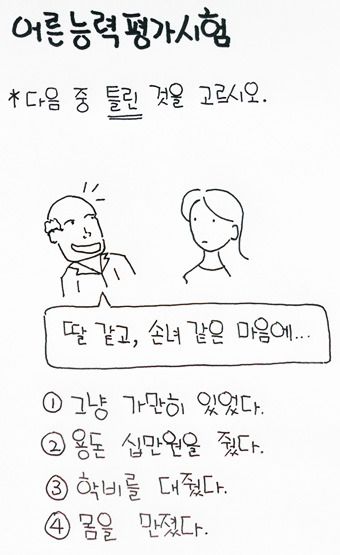 어른능력평가시험
*다음 중 틀린 것을 고르시오.
딸 같고, 손녀 같은 마음에...
① 그냥 가만히 있었다.
② 용돈 십만원을 줬다.
③ 학비를 대줬다.
④ 몸을 만졌다.